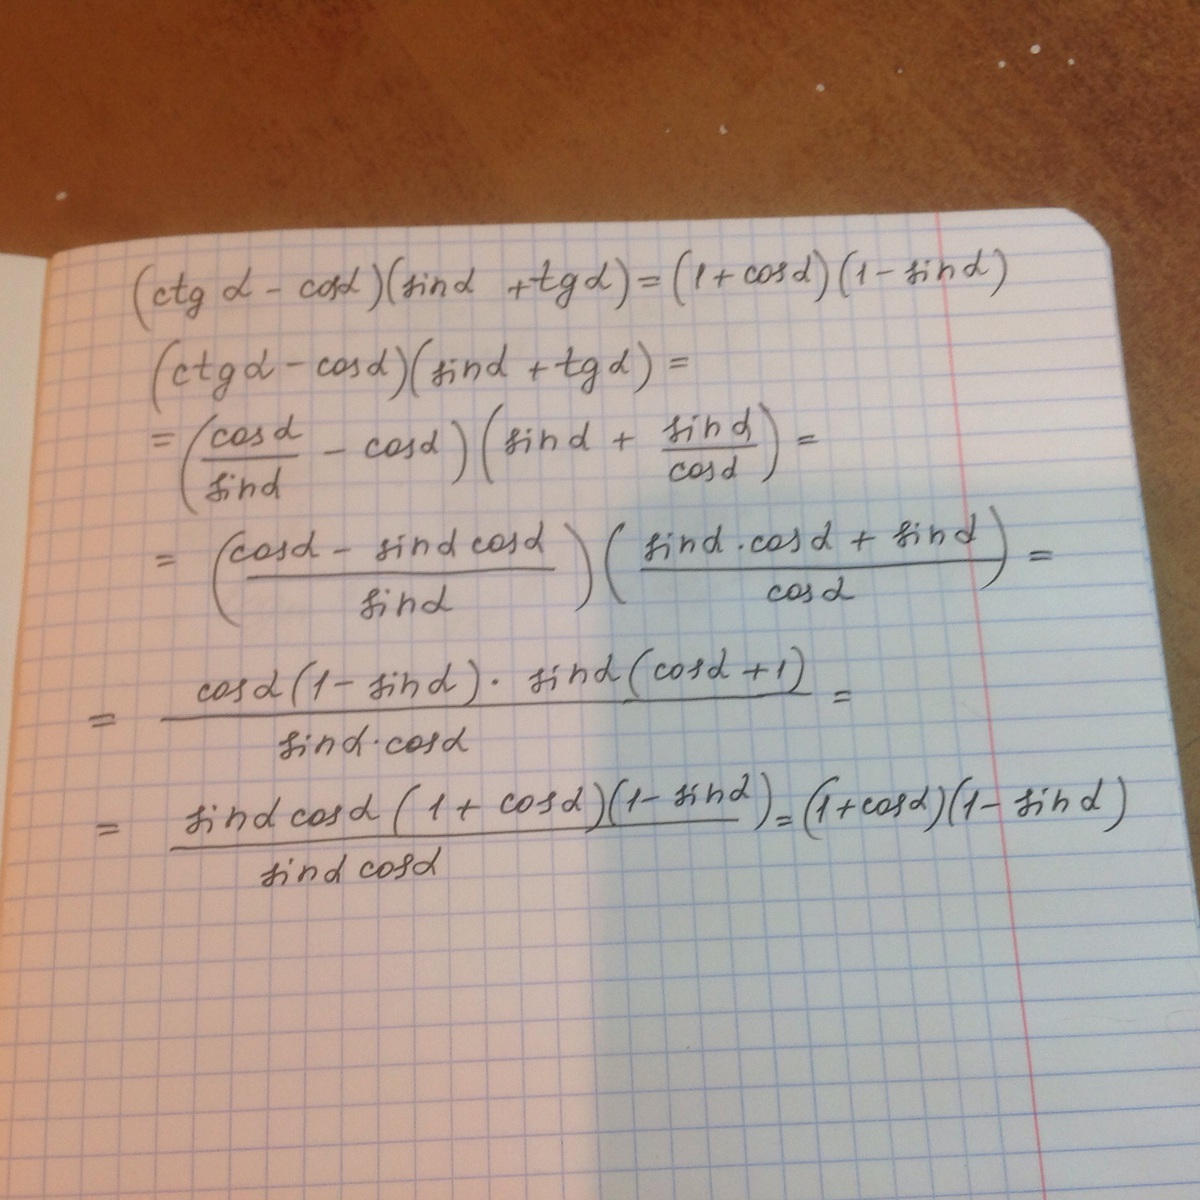 (ctg α - cosα)(sinα + tgα) = (1 + cosα)(1 - sinα)
(ctgα - cosα)(sinα + tgα) =
= (cosα/sinα - cosα)(sinα + sinα/cosα) =
= ((cosα - sinα cosα)/sinα)((sinα·cosα + sinα)/cosα) =
= (cosα(1 - sinα)·sinα(cosα + 1))/(sinα·cosα) =
= (sinα cosα(1 + cosα)(1 - sinα))/(sinα cosα) = (1 + cosα)(1 - sinα)